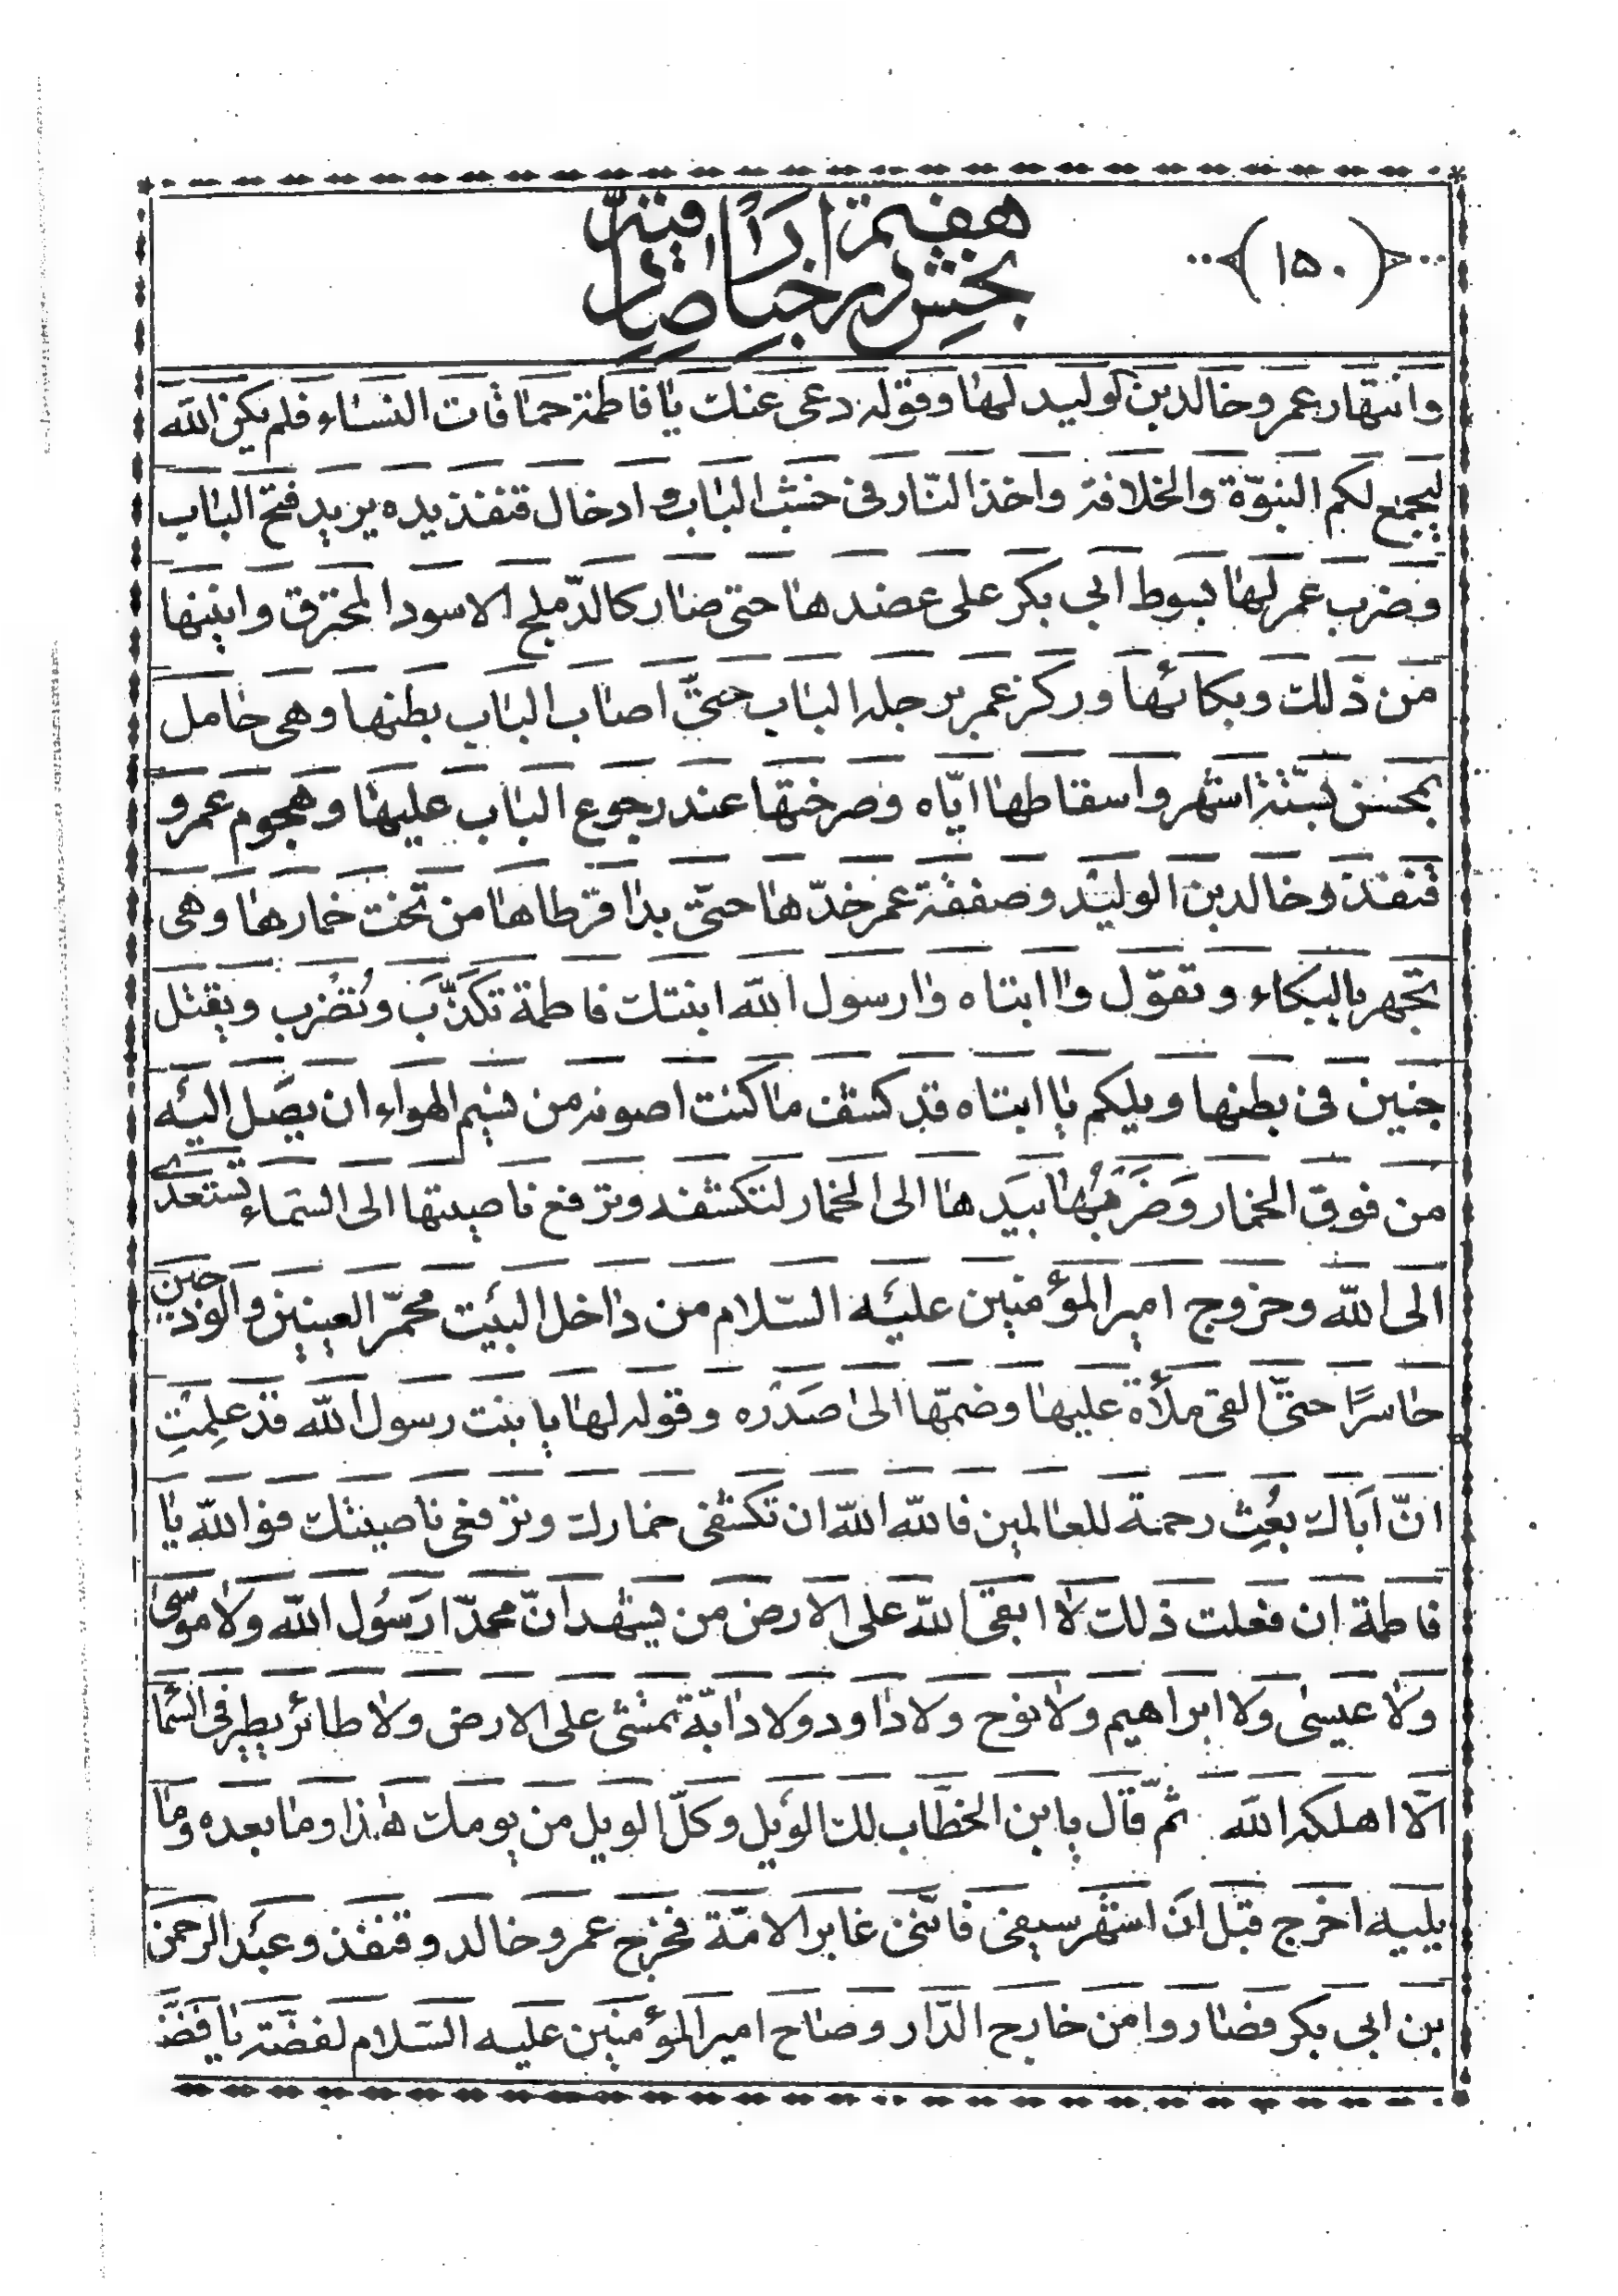 (۱۵۰)
بخش هفتم در اخبار
وانتهار عمر وخالد بن الوليد لها وقوله دعى عنك يا فاطمة حماقات النساء فلم يكن الله
ليجمع لكم النبوّة والخلافة واخذ النّار فى خشب الباب و ادخال قنفذ يده يريد فتح الباب
وضرب عمر لها بسوط ابي بكر على عضدها حتى صار كالدّملج الاسود المحترق وانينها
من ذلك وبكائها وركز عمر برجله الباب حتىّ اصاب الباب بطنها وهى حامل
بمحسن لستّة اشهر واسقاطها ايّاه وصرختها عند رجوع الباب عليها وهجوم عمر و
قنفذ وخالد بن الوليد وصفقة عمر خدّها حتّى بدا قرطاها من تحت خمارها وهى
تجهر بالبكاء وتقول وا ابتاه وا رسول الله ابنتك فاطمة تكذَّب وتُضرب ويقتل
جنين فى بطنها ويلكم يا ابتاه قد كشف ما كنت اصونه من نسيم الهواء ان يصل اليه
من فوق الخمار وَضَرَبُها بيَدها الى الخمار لتكشفه وترفع ناصيتها الى السّماء تستعدى
الى الله وخروج امير المؤمنين عليه السّلام من داخل البيت محمّر العينين والودجين
حاسرًا حتّى القى ملأة عليها وضمّها الى صدره وقوله لها يا بنت رسول الله قد علِمتِ
انّ اباك بُعِث رحمة للعالمين فالله الله ان تكشفى خمارك وترفعى ناصيتك فوالله يا
فاطمة ان فعلت ذلك لا ابقى الله على الارض من يشهد انّ محمدّا رسُول الله ولا موسى
ولا عيسى ولا ابراهيم ولا نوح ولا داود ولا دابّة تمشى على الارض ولا طائر يطير فى السّما
الّا اهلكه الله ثمّ قال يا بن الخطّاب لك الويل وكلّ الويل من يومك هذا وما بعده وما
يليه اخرج قبل ان اشهر سيفى فافنى غابر الامّة فخرج عمر وخالد وقنفذ وعبد الرحمن
بن ابى بكر فصاروا من خارج الدّار وصاح امير المؤمنين عليه السّلام لفضّة يا فضّة